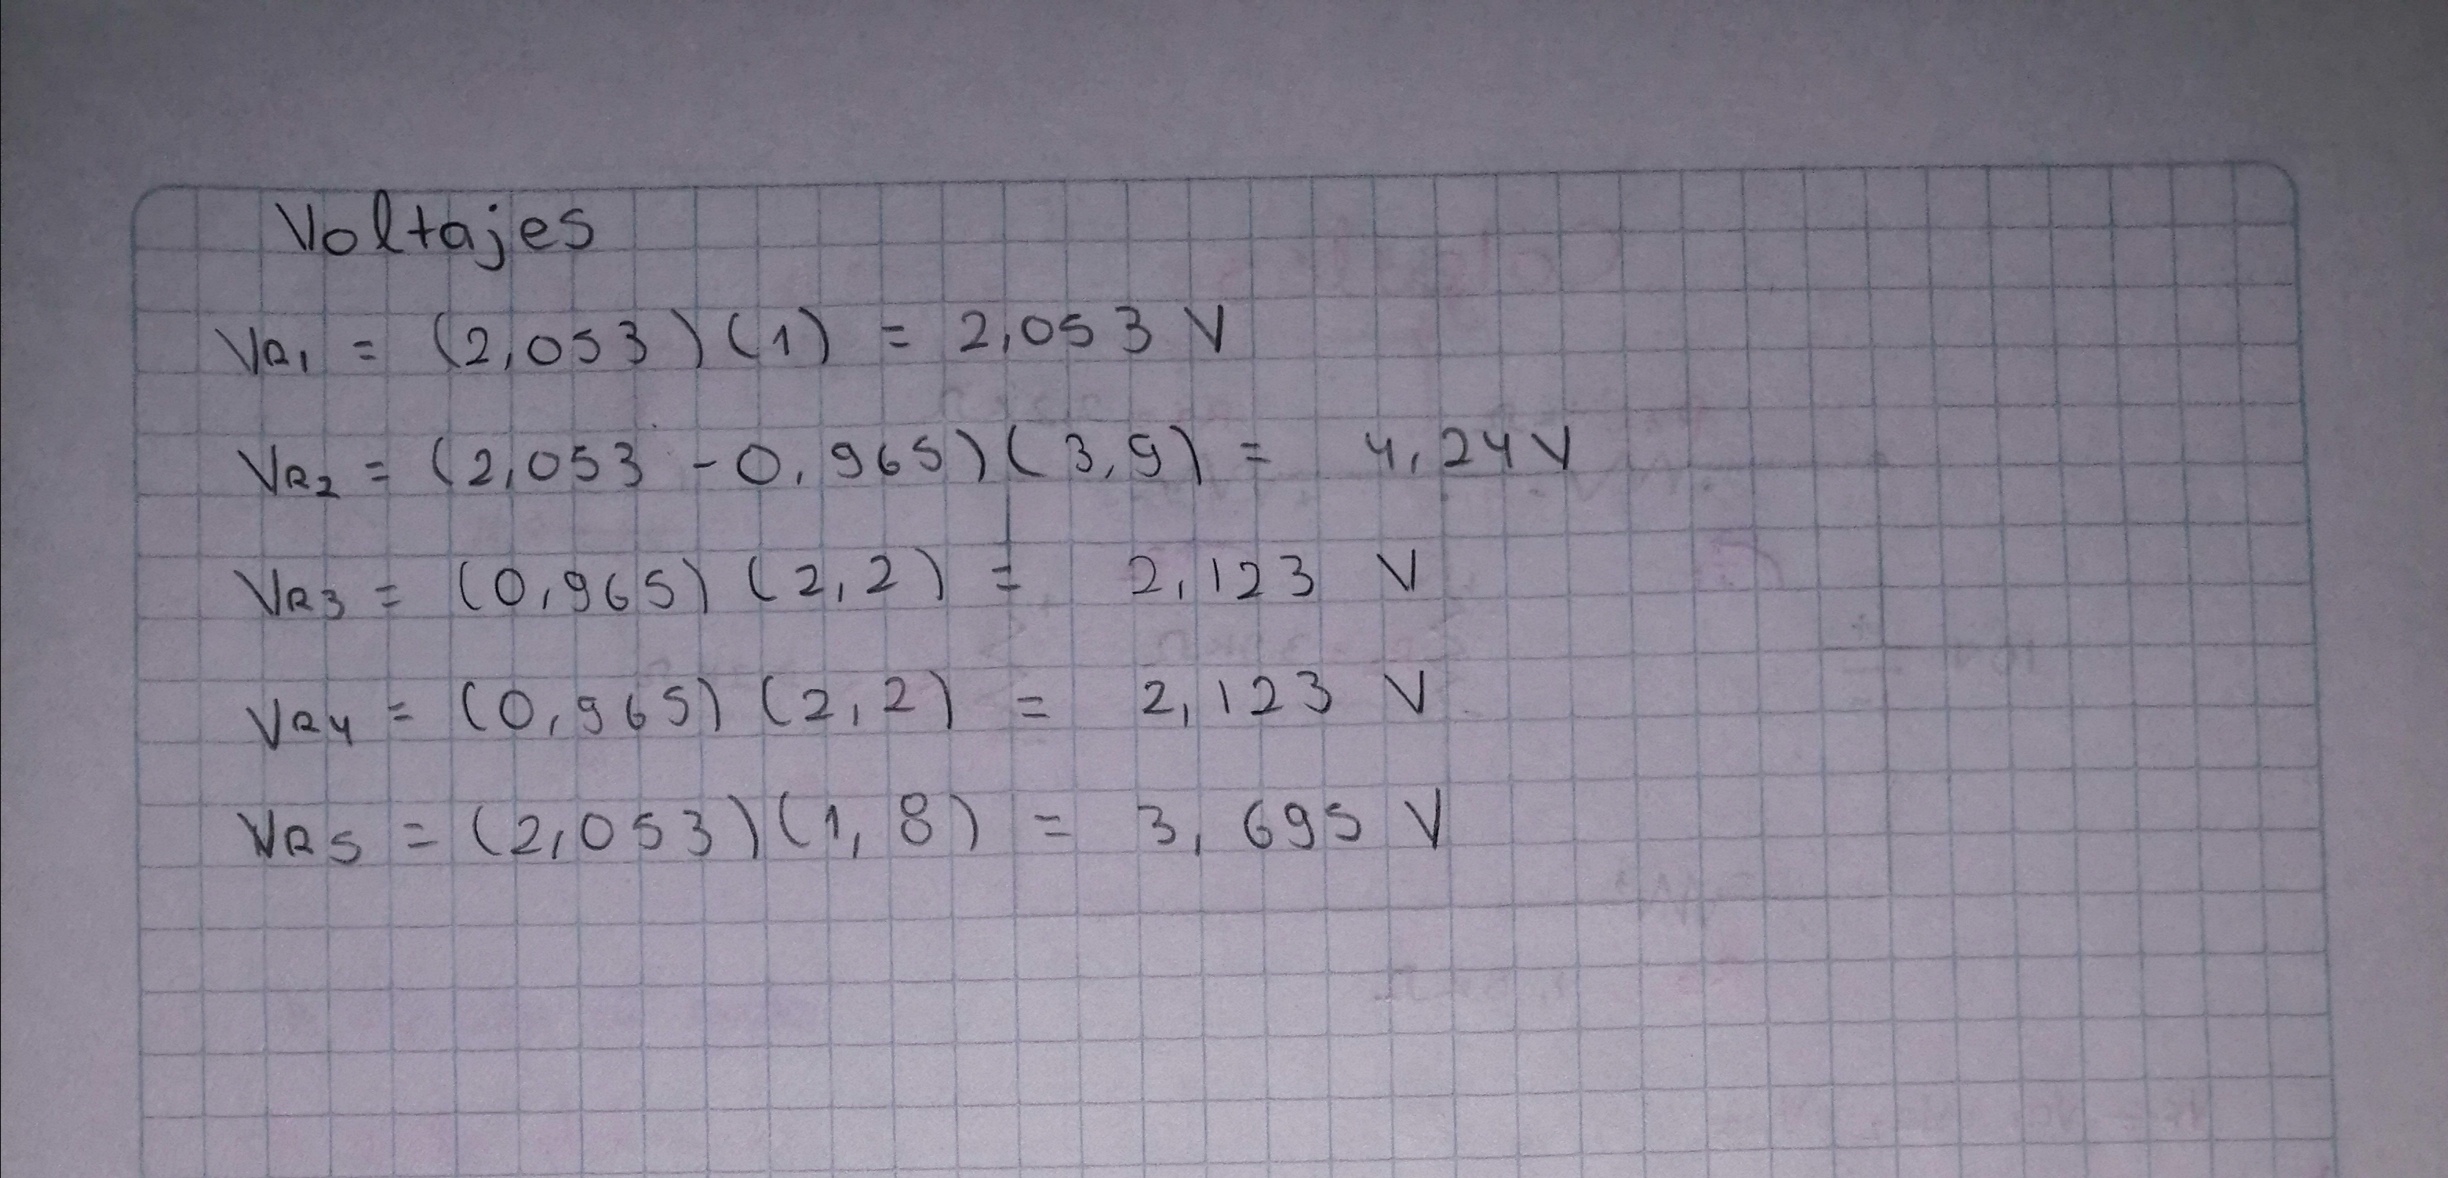 Voltajes
VR1 = (2,053)(1) = 2,053 V
VR2 = (2,053 - 0,965)(3,9) = 4,24 V
VR3 = (0,965)(2,2) = 2,123 V
VR4 = (0,965)(2,2) = 2,123 V
VR5 = (2,053)(1,8) = 3,695 V